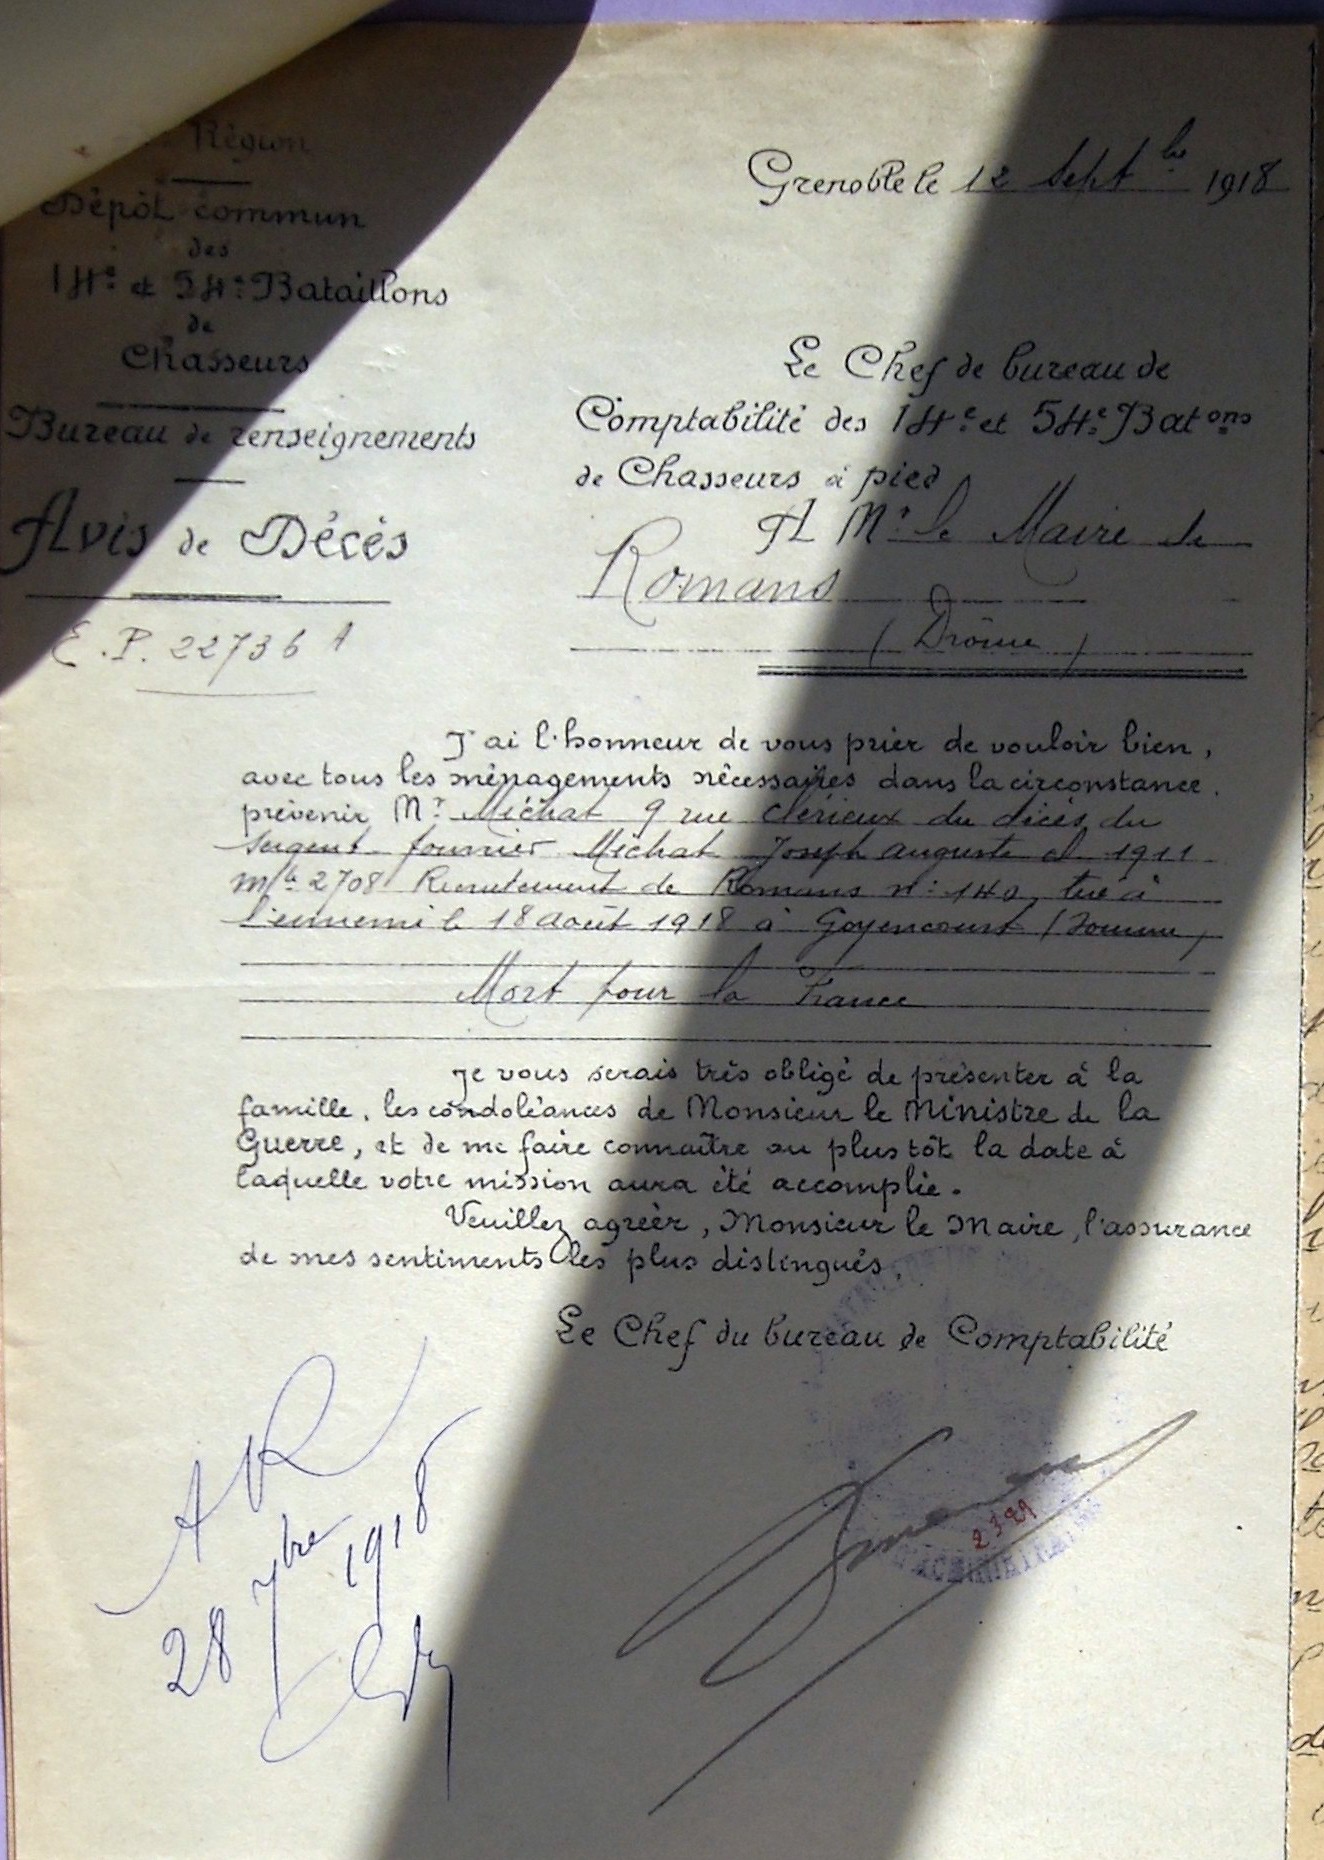 Région
Dépôt commun
des
14e. & 54e. Bataillons
de
Chasseurs
Bureau de renseignements
Avis de Décès
E.P. 22736 A
Grenoble le 12 Septbre 1918
Le Chef de bureau de
Comptabilité des 14e. et 54e. Batons
de Chasseurs à pied
A Mr. le Maire de
Romans
(Drôme)
J'ai l'honneur de vous prier de vouloir bien,
avec tous les ménagements nécessaires dans la circonstance.
prévenir Mr. Michat 9 rue Clérieux du décès du
Sergent-fourrier Michat Joseph auguste cl 1911
Mle 2708 Recrutement de Romans n: 140, tué à
l'ennemi le 18 août 1918 à Goyencourt (Somme)
Mort pour la France
Je vous serais très obligé de présenter à la
famille, les condoléances de Monsieur le Ministre de la
Guerre, et de me faire connaître au plus tôt la date à
laquelle votre mission aura été accomplie.
Veuillez agréer, Monsieur le Maire, l'assurance
de mes sentiments les plus distingués.
Le Chef du bureau de Comptabilité
AR
28 7bre 1918
2389
D'ADMINISTRATION